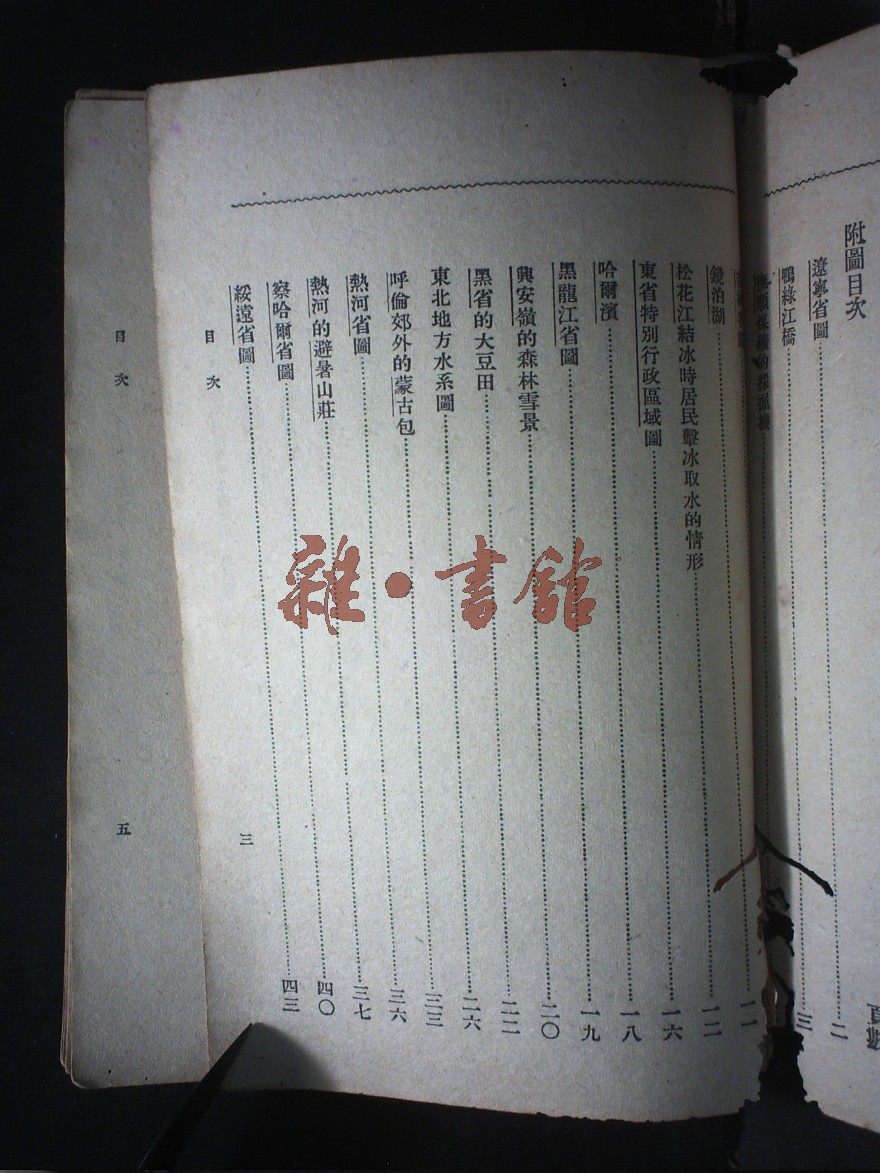 附圖目次
頁數
遼寧省圖……二
鴨綠江橋……三
一一
鏡泊湖……一二
松花江結冰時居民擊冰取水的情形……一六
東省特別行政區域圖……一八
哈爾濱……一九
黑龍江省圖……二〇
興安嶺的森林雪景……二二
黑省的大豆田……二六
東北地方水系圖……三三
呼倫郊外的蒙古包……三六
熱河省圖……三七
熱河的避暑山莊……四〇
察哈爾省圖……四三
綏遠省圖……
目次 三
目次 五
雜·書館